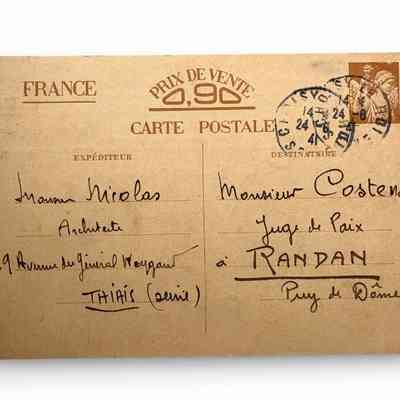 FRANCE
PRIX DE VENTE
0,90
CARTE POSTALE
EXPÉDITEUR
DESTINATAIRE
14
24
41
14
24-8
Nicolas
Architecte
9 Avenue du Général Weygand
THIAIS (Seine)
Monsieur Coste
Juge de Paix
à RANDAN
Puy de Dôme